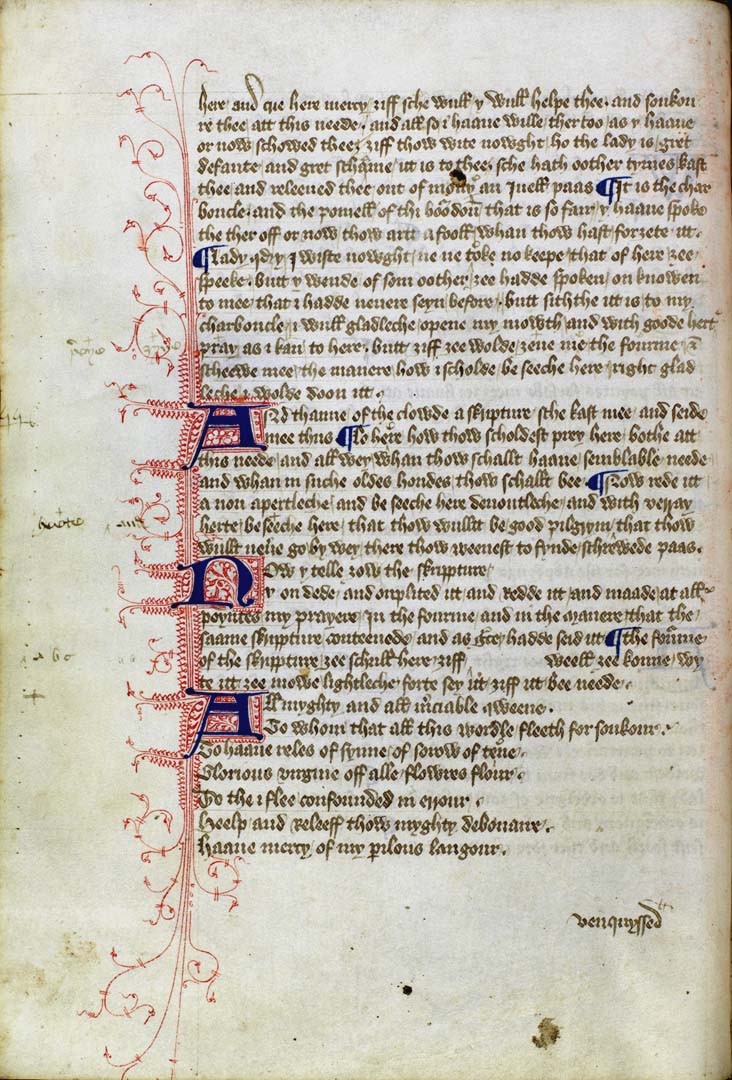 here and crie here mercy ziff sche wull y wull helpe thee · and soukou
re thee att this neede · and all so i haaue wille ther too as y haaue
or now schowed thee ziff thow wite nowght ho the lady is gret
defaute and gret schame itt is to thee · sche hath oother tymes kast
thee and releeued thee out of mony an Iuell paas ¶ It is the char
boncle · and the pomell of thi boordoun that is so fair y haaue spoke
the ther off or now thow artt a fooll whan thow hast forzete itt ·
¶ Lady qd y I wiste nowght ne ne toke no keepe that of here zee
speeke · butt y wende of som oother zee hadde spoken on knowen
to mee that i hadde neuere seyn before · butt siththe itt is to my
charboncle i wull gladleche opene my mowth and with goode hert
pray as i kan to here · butt ziff zee wolde zeue me the fourme &
scheewe mee the manere how i scholde be seeche here right glad
leche i wolde doon itt ·
And thanne of the clowde a skripture sche kast mee and seide
mee thus ¶ Lo here how thow scholdest prey here bothe att
this neede and all wey whan thow schallt haaue semblable neede
and whan in suche oldes hondes thow schallt bee · ¶ Now rede itt
a non apertleche and be seeche here deuoutleche and with verray
herte be seeche here that thow wultt be good pilgrym that thow
wullt neuere go by wey there thow weenest to fynde schrewede paas ·
Now y telle zow the skripture
y on dede and onplited itt and redde itt and maade at all
poyntes my prayere In the fourme and in the manere that the
saame skripture conteenede and as grace hadde seid itt ¶ the fourme
of the skripture zee schull here ziff weell zee konne wy
te itt zee mowe lightleche forte sey itt ziff itt bee neede ·
All myghty and all merciable qweene ·
To whom that all this wordle fleeth for soukour ·
To haaue reles of synne of sorow of teene
Glorious virgine off alle flowres flour ·
To the i flee confounded in errour ·
Heelp and releeff thow myghty debonaire ·
Haaue mercy of my perilous langour ·
venquyssed